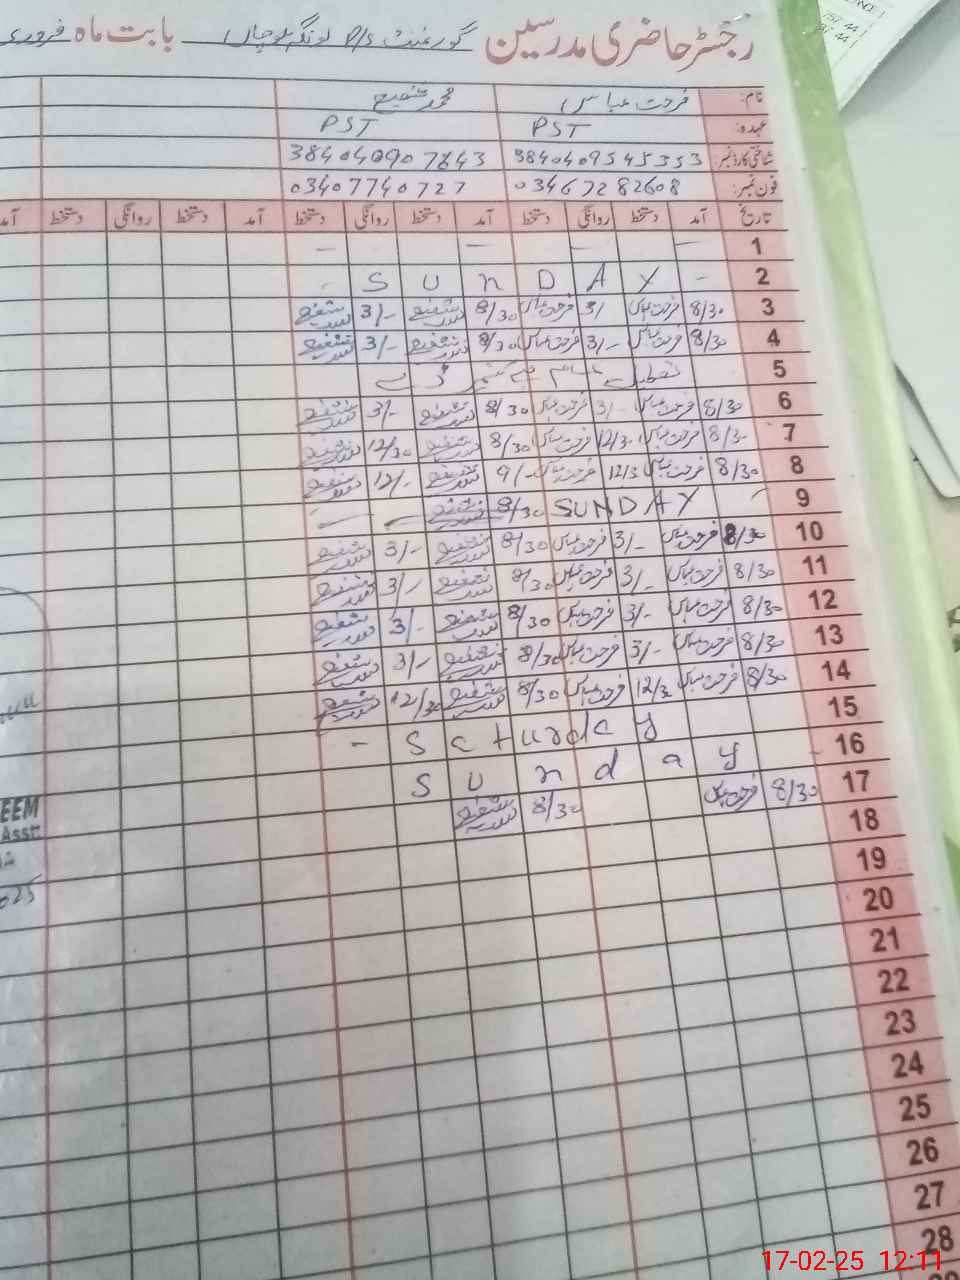 رجسٹر حاضری مدرسین گورنمنٹ P/S بابت ماہ فروری
نام: فرحت عباس محمد شفیع
عہدہ: PST PST
شناختی کارڈ نمبر: 3840409545353 3840409907643
فون نمبر: 03467282608 03407740727
تاریخ آمد دستخط روانگی دستخط آمد دستخط روانگی دستخط آمد دستخط روانگی دستخط آمد
1 — — — —
2 - S U N D A Y -
3 8/30 فرحت عباس 3/ فرحت عباس 8/30 شفیع 3/- شفیع
4 8/30 فرحت عباس 3/- فرحت عباس 8/30 شفیع 3/- شفیع
5 تعطیل کشمیر ڈے
6 8/30 فرحت عباس 3/- فرحت عباس 8/30 شفیع 3/- شفیع
7 8/30 فرحت عباس 12/30 فرحت عباس 8/30 شفیع 12/30 شفیع
8 8/30 فرحت عباس 12/3 فرحت عباس 9/- شفیع 12/- شفیع
9 SUNDAY 8/30 شفیع — —
10 8/30 فرحت عباس 3/- فرحت عباس 8/30 شفیع 3/- شفیع
11 8/30 فرحت عباس 3/- فرحت عباس 8/30 شفیع 3/- شفیع
12 8/30 فرحت عباس 3/- فرحت عباس 8/30 شفیع 3/- شفیع
13 8/30 فرحت عباس 3/- فرحت عباس 8/30 شفیع 3/- شفیع
14 8/30 فرحت عباس 12/3 فرحت عباس 8/30 شفیع 12/30 شفیع
15 - Saturday
16 Sunday
17 8/30 فرحت عباس 8/30 شفیع
18
19
20
21
22
23
24
25
26
27
28
EEM
Asstt
025
17-02-25 12:11